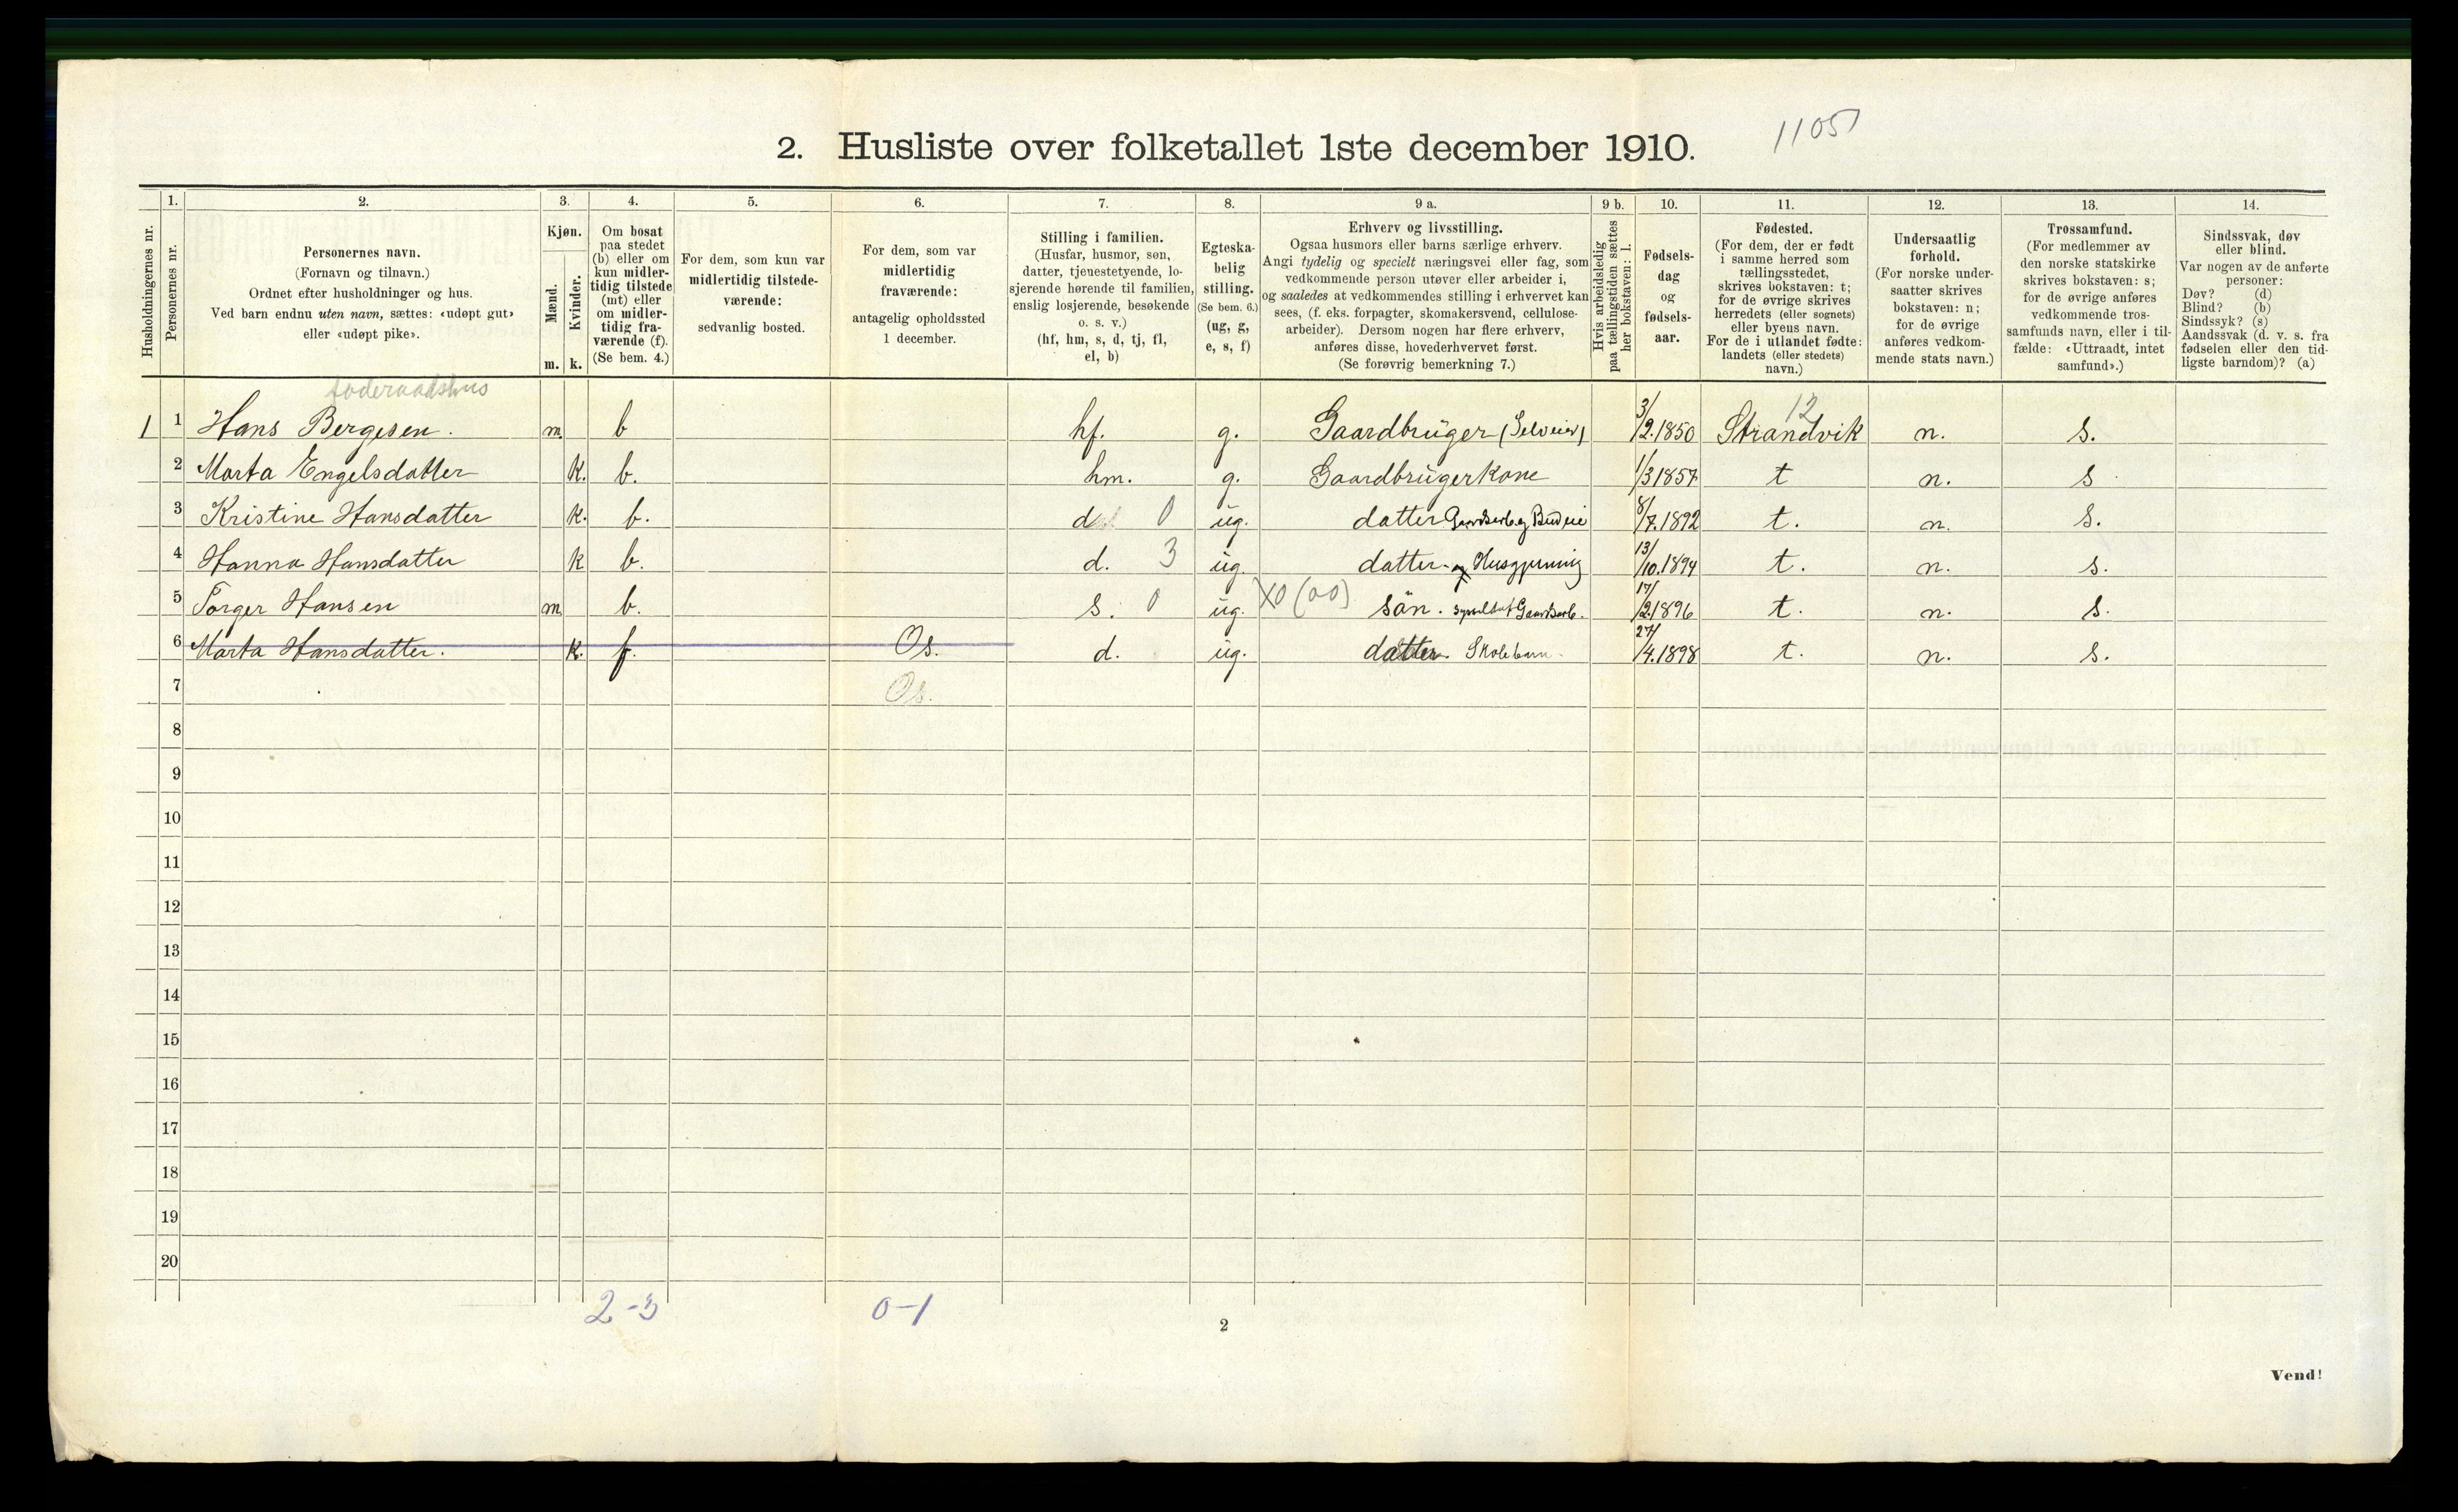 1105
2. Husliste over folketallet 1ste december 1910.
Husholdningernes nr.
1.
Personernes nr.
2.
Personernes navn.
(Fornavn og tilnavn.)
Ordnet efter husholdninger og hus.
Ved barn endnu uten navn, sættes: «udøpt gut»
eller «udøpt pike».
3.
Kjøn.
Mænd.
Kvinder.
m. k.
4.
Om bosat
paa stedet
(b) eller om
kun midler-
tidig tilstede
(mt) eller
om midler-
tidig fra-
værende (f).
(Se bem. 4.)
5.
For dem, som kun var
midlertidig tilstede-
værende:
sedvanlig bosted.
6.
For dem, som var
midlertidig
fraværende:
antagelig opholdssted
1 december.
7.
Stilling i familien.
(Husfar, husmor, søn,
datter, tjenestetyende, lo-
sjerende hørende til familien,
enslig losjerende, besøkende
o. s. v.)
(hf, hm, s, d, tj, fl,
el, b)
8.
Egteska-
belig
stilling.
(Se bem. 6.)
(ug, g,
e, s, f)
9 a.
Erhverv og livsstilling.
Ogsaa husmors eller barns særlige erhverv.
Angi tydelig og specielt næringsvei eller fag, som
vedkommende person utøver eller arbeider i,
og saaledes at vedkommendes stilling i erhvervet kan
sees, (f. eks. forpagter, skomakersvend, cellulose-
arbeider). Dersom nogen har flere erhverv,
anføres disse, hovederhvervet først.
(Se forøvrig bemerkning 7.)
9 b.
Hvis arbeidsledig
paa tællingstiden sættes
her bokstaven: l.
10.
Fødsels-
dag
og
fødsels-
aar.
11.
Fødested.
(For dem, der er født
i samme herred som
tællingsstedet,
skrives bokstaven: t;
for de øvrige skrives
herredets (eller sognets)
eller byens navn.
For de i utlandet fødte:
landets (eller stedets)
navn.)
12.
Undersaatlig
forhold.
(For norske under-
saatter skrives
bokstaven: n;
for de øvrige
anføres vedkom-
mende stats navn.)
13.
Trossamfund.
(For medlemmer av
den norske statskirke
skrives bokstaven: s;
for de øvrige anføres
vedkommende tros-
samfunds navn, eller i til-
fælde: «Uttraadt, intet
samfund».)
14.
Sindssvak, døv
eller blind.
Var nogen av de anførte
personer:
Døv? (d)
Blind? (b)
Sindssyk? (s)
Aandssvak (d. v. s. fra
fødselen eller den tid-
ligste barndom)? (a)
foderaadshus
12
1 1 Hans Bergesen. m b hf. g. Gaardbrüger (Selveier) 3/2.1850 Strandvik n. s.
2 Marta Engelsdatter k. b. hm. g. Gaardbrügerkone 1/3 1857 t n. s
3 Kristine Hansdatter k. b. d 0 üg. datter Gaardsarb. og Budeie 8/7.1892 t. n. s.
4 Hanna Hansdatter k b. d. 3 üg. datter og Husgjerning 13/10.1894 t. n. s.
5 Torger Hansen m b. s. 0 üg. X0 (00) sön. Gaardsarb. 17/2.1896 t. n. s.
6 Marta Hansdatter. k. f. Os. d. üg. datter Skolebarn 27/4.1898 t. n. s.
7 Os.
8
9
10
11
12
13
14
15
16
17
18
19
20
2-3 0-1
2
Vend!